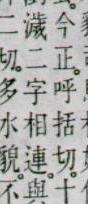 今正。呼括切。十
濊二字相連。與
二切。多水貌。不